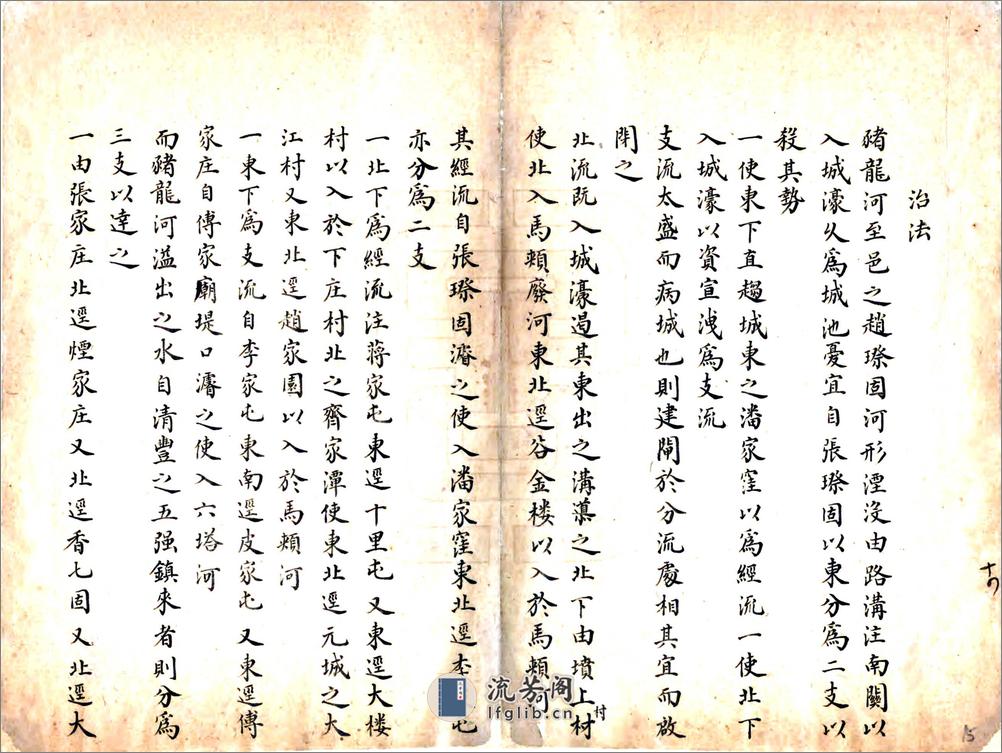 治法
豬龍河至邑之趙琛固河形湮沒由路溝注南關以
入城濠久爲城池憂宜自張琛固以東分爲二支以
殺其勢
一使東下直趨城東之潘家窪以爲經流一使北下
入城濠以資宣洩爲支流
支流太盛而病城也則建閘於分流處相其宜而啟
閉之
北流既入城濠過其東出之溝導之北下由墳上村
使北入馬頰廢河東北逕谷金楼以入於馬頰河
村
其經流自張琛固濬之使入潘家窪東北逕李家屯
亦分爲二支
一北下爲經流注蔣家屯東逕十里屯又東逕大楼
村以入於下庄村北之齊家潭使東北逕元城之大
江村又東北逕趙家園以入於馬頰河
一東下爲支流自李家屯東南逕皮家屯又東逕傅
家庄自傅家廟堤口濬之使入六塔河
而豬龍河溢出之水自清豐之五强鎮來者則分爲
三支以達之
一由張家庄北逕煙家庄又北逕香七固又北逕大
流芳阁
lfglib.cn
15